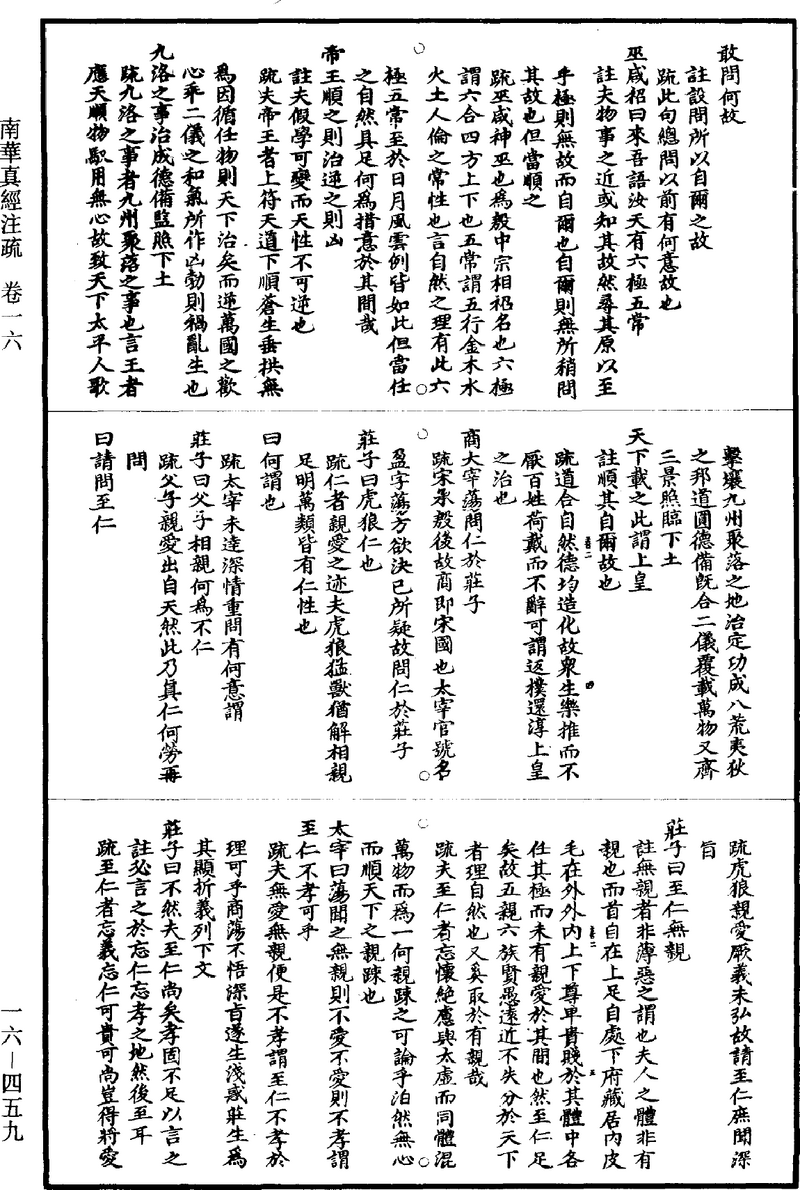 敢問何故
註設問所以自爾之故
疏此句總問以前有何意故也
巫咸袑曰來吾語汝天有六極五常
註夫物事之近或知其故然尋其原以至
乎極則無故而自爾也自爾則無所稍問
其故也但當順之
疏巫咸神巫也為殷中宗相袑名也六極
謂六合四方上下也五常謂五行金木水
火土人倫之常性也言自然之理有此六
極五常至於日月風雲例皆如此但當任
之自然具足何為措意於其間哉
帝王順之則治逆之則凶
註夫假學可變而天性不可逆也
疏夫帝王者上符天道下順蒼生垂拱無
為因循任物則天下治矣而逆萬國之歡
心乖二儀之和氣所作凶勃則禍亂生也
九洛之事治成德備監照下土
疏九洛之事者九州聚落之事也言王者
應天順物馭用無心故致天下太平人歌
擊壤九州聚落之地治定功成八荒夷狄
之邦道圓德備既合二儀覆載萬物又齊
三景照臨下土
天下載之此謂上皇
註順其自爾故也
疏道合自然德均造化故眾生樂推而不
厭百姓荷戴而不辭可謂返樸還淳上皇
之治也
商大宰蕩問仁於莊子
疏宋承殷後故商即宋國也太宰官號名
盈字蕩方欲決已所疑故問仁於莊子
莊子曰虎狼仁也
疏仁者親愛之迹夫虎狼猛獸猶解相親
足明萬類皆有仁性也
曰何謂也
疏太宰未達深情重問有何意謂
莊子曰父子相親何為不仁
疏父子親愛出自天然此乃真仁何勞再
問
曰請問至仁
疏虎狼親愛厥義未弘故請至仁庶聞深
旨
莊子曰至仁無親
註無親者非薄惡之謂也夫人之體非有
親也而首自在上足自處下府藏居內皮
毛在外外內上下尊卑貴賤於其體中各
任其極而未有親愛於其間也然至仁足
矣故五親六族賢愚遠近不失分於天下
者理自然也又奚取於有親哉
疏夫至仁者忘懷絕慮與太虛而同體混
萬物而為一何親疎之可論乎泊然無心
而順天下之親疎也
太宰曰蕩聞之無親則不愛不愛則不孝謂
至仁不孝可乎
疏夫無愛無親便是不孝謂至仁不孝於
理可乎商蕩不悟深旨遂生淺惑莊生為
其顯折義列下文
莊子曰不然夫至仁尚矣孝固不足以言之
註必言之於忘仁忘孝之地然後至耳
疏至仁者忘義忘仁可貴可尚豈得將愛
南華真經注疏 卷一六
一六—四五九